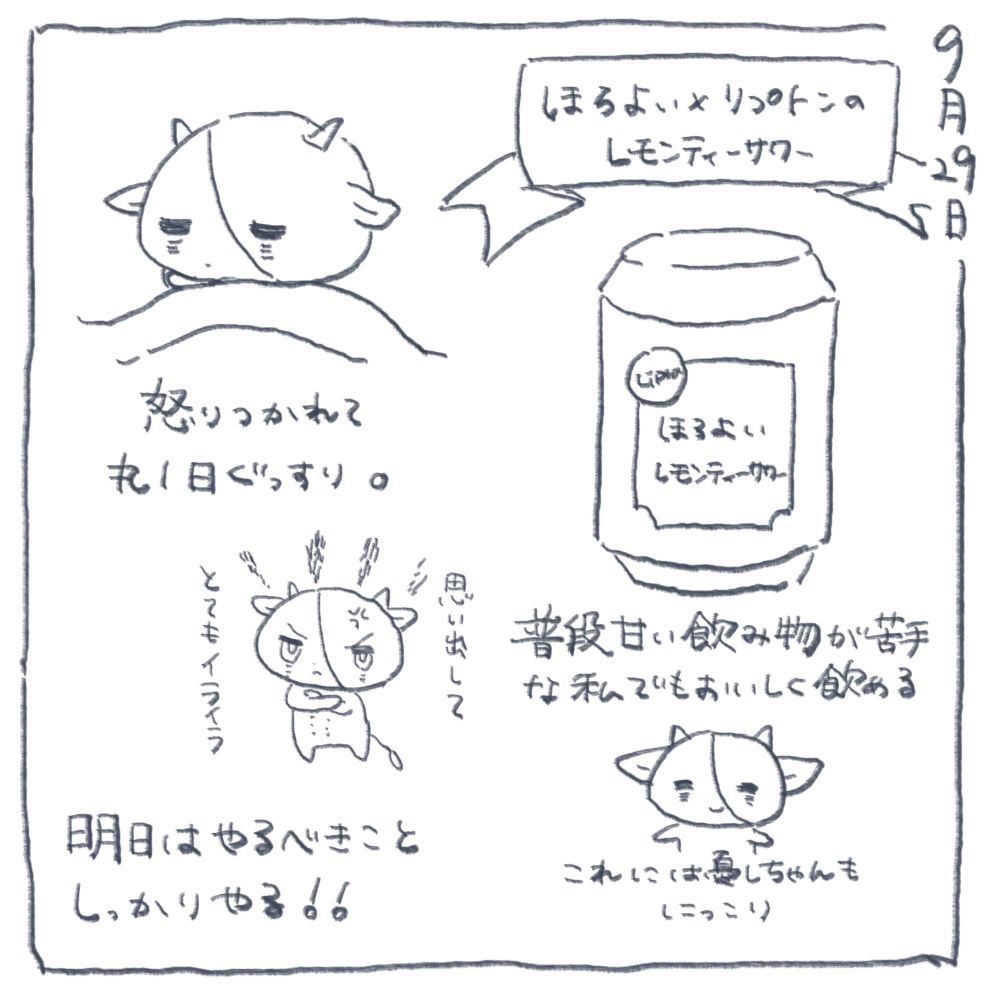 9月29日
ほろよい×リプトンの
レモンティーサワー
Lipton
ほろよい
レモンティーサワー
普段甘い飲み物が苦手
な私でもおいしく飲める
これには憂しちゃんも
にっこり
怒りつかれて
丸1日ぐっすり。
思い出して
とてもイライラ
明日はやるべきこと
しっかりやる!!